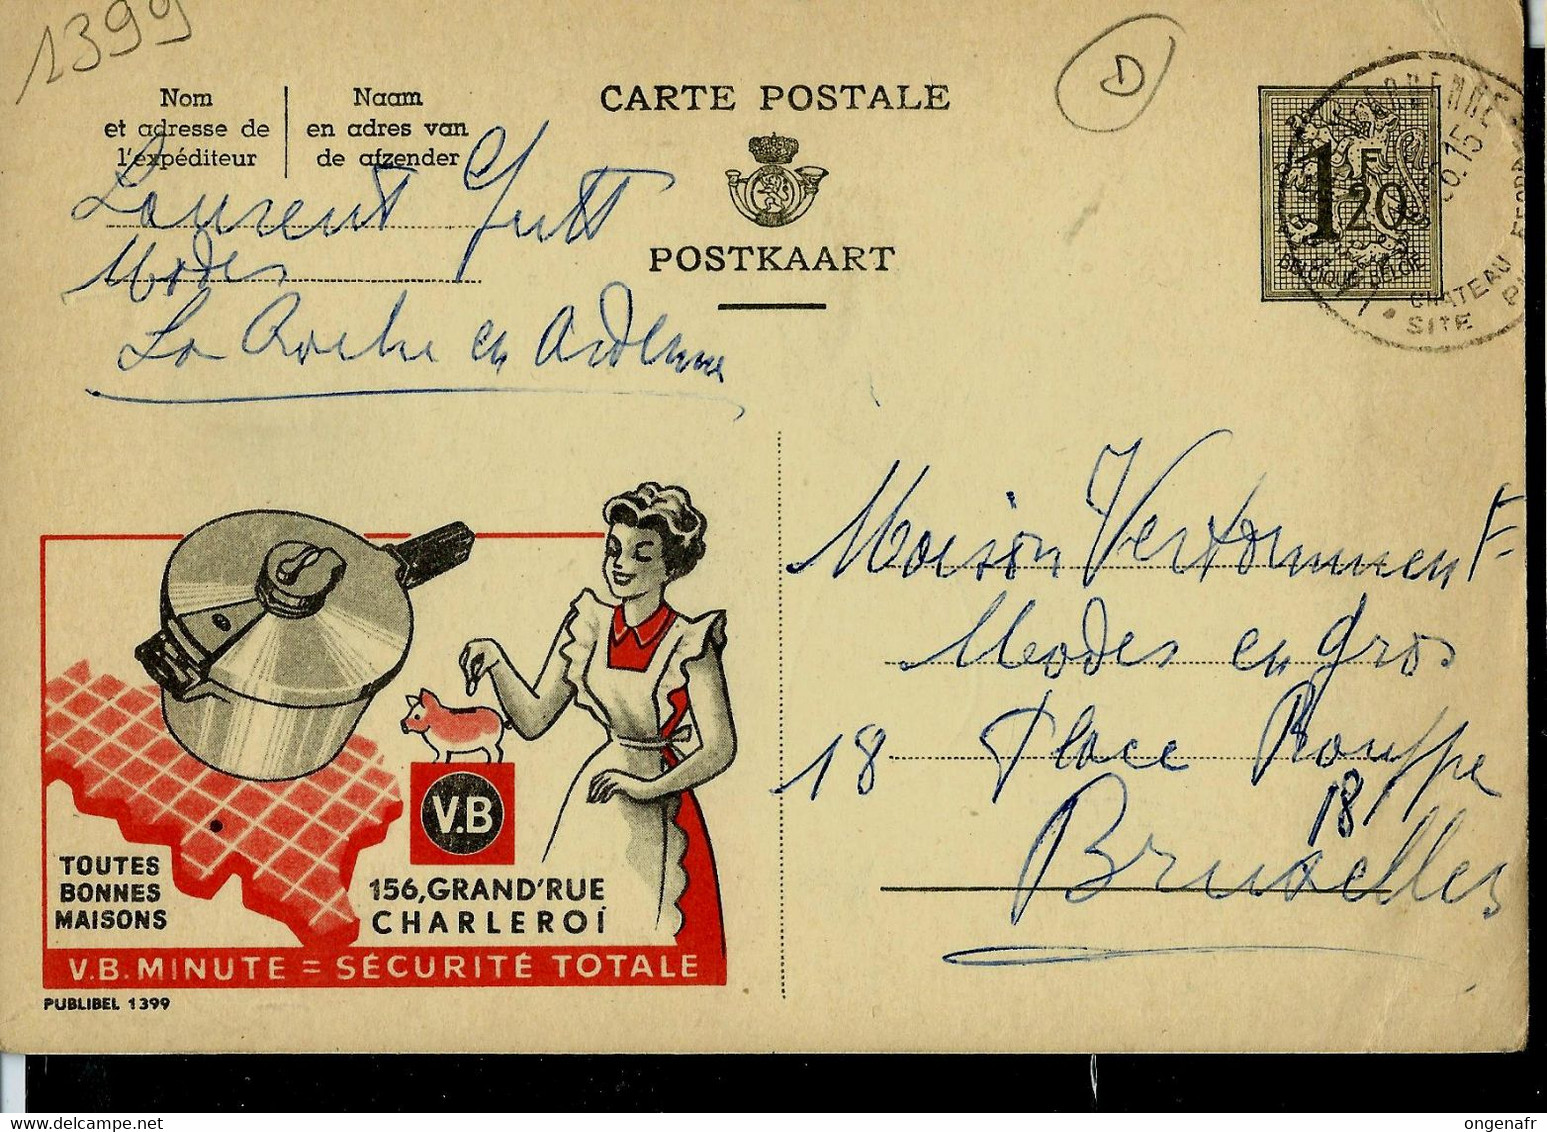 1399
D
Nom
et adresse de
l'expéditeur
Naam
en adres van
de afzender
CARTE POSTALE
POSTKAART
1F20
BELGIQUE BELGIE
CHATEAU
SITE
Laurent Gutt
Modes
La Roche en Ardenne
Maison Vertommen F.
Modes en gros
18 Place Rouppe
18
Bruxelles
V.B
TOUTES
BONNES
MAISONS
156, GRAND'RUE
CHARLEROI
V.B. MINUTE = SÉCURITÉ TOTALE
PUBLIBEL 1399
ongenafr